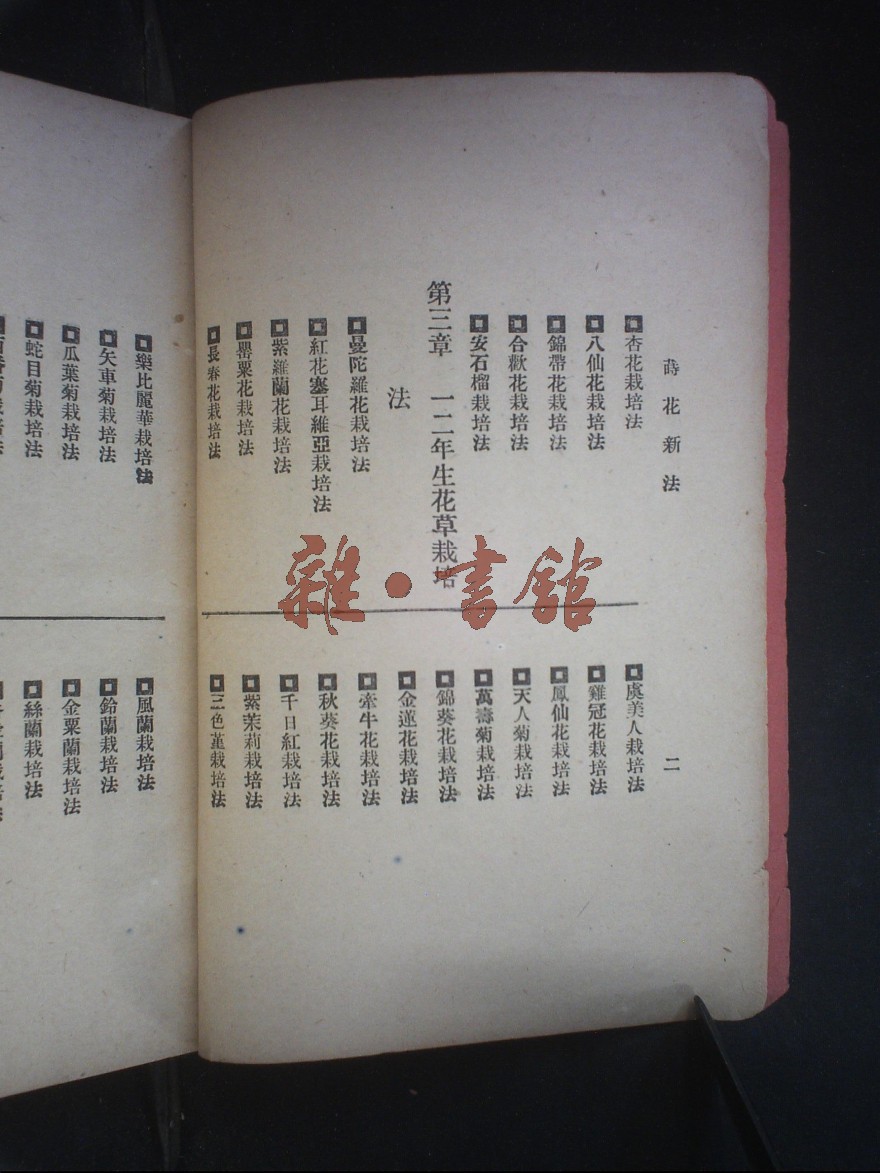 蒔花新法
二
杏花栽培法
八仙花栽培法
錦帶花栽培法
合歡花栽培法
安石榴栽培法
第三章　一二年生花草栽培
法
曼陀羅花栽培法
紅花塞耳維亞栽培法
紫羅蘭花栽培法
罌粟花栽培法
長春花栽培法
虞美人栽培法
雞冠花栽培法
鳳仙花栽培法
天人菊栽培法
萬壽菊栽培法
錦葵花栽培法
金蓮花栽培法
牽牛花栽培法
秋葵花栽培法
千日紅栽培法
紫茉莉栽培法
三色堇栽培法
樂比麗華栽培法
矢車菊栽培法
瓜葉菊栽培法
蛇目菊栽培法
栽培法
風蘭栽培法
鈴蘭栽培法
金粟蘭栽培法
絲蘭栽培法
栽培法
雜·書館